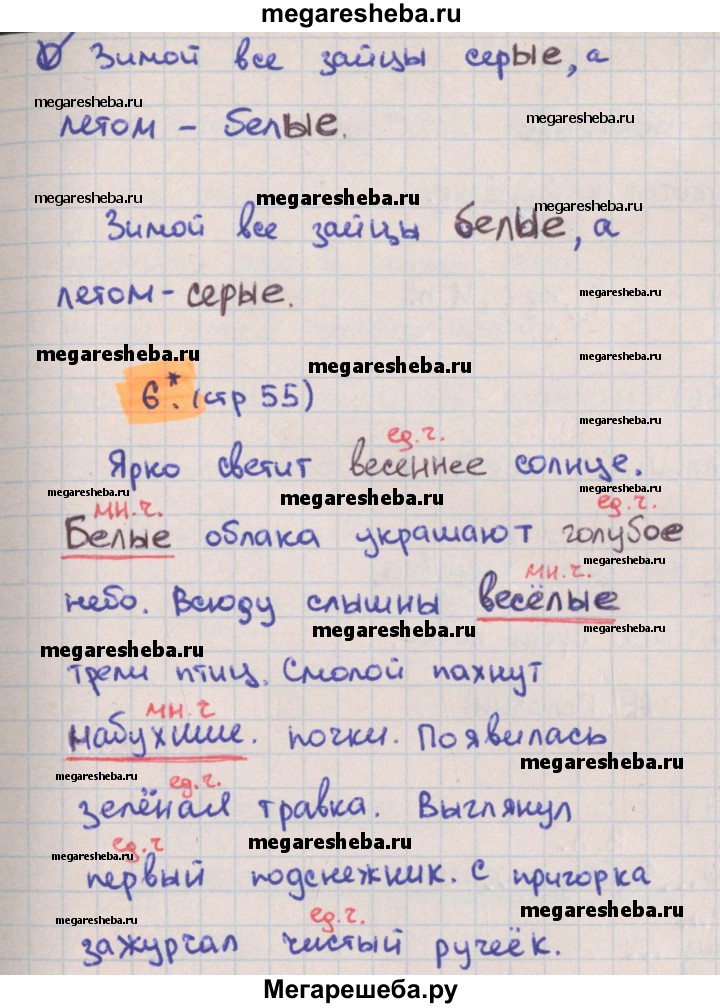 megaresheba.ru
Зимой все зайцы серые, а
megaresheba.ru
megaresheba.ru
летом - белые.
megaresheba.ru
megaresheba.ru
megaresheba.ru
Зимой все зайцы белые, а
летом - серые.
megaresheba.ru
megaresheba.ru
megaresheba.ru
6*. (стр 55)
ед.ч.
Ярко светит весеннее солнце.
megaresheba.ru
megaresheba.ru
megaresheba.ru
мн.ч. ед.ч.
Белые облака украшают голубое
megaresheba.ru
мн.ч.
небо. Всюду слышны весёлые
megaresheba.ru
megaresheba.ru
трели птиц. Смолой пахнут
мн.ч
набухшие. почки. Появилась
megaresheba.ru
megaresheba.ru
ед.ч.
зелёная травка. Выглянул
megaresheba.ru
ед.ч
megaresheba.ru
первый подснежник. С пригорка
megaresheba.ru
megaresheba.ru
ед.ч.
зажурчал чистый ручеёк.
Мегарешеба.ру